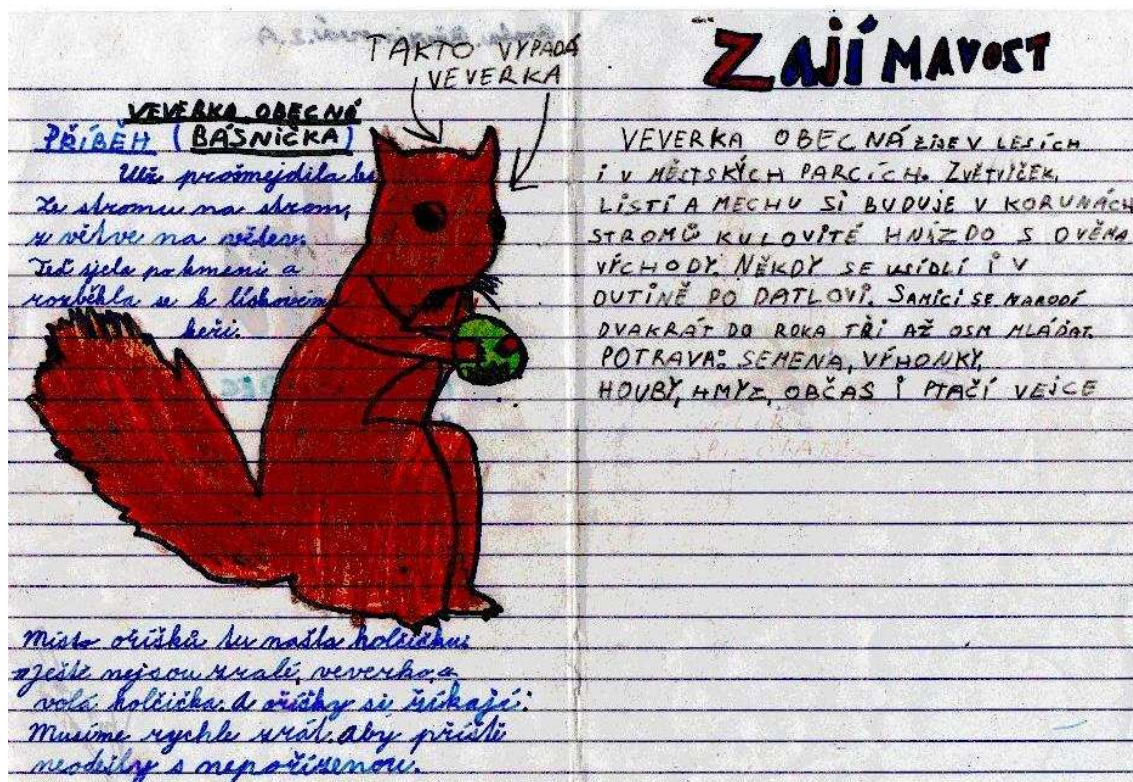 TAKTO VYPADÁ
VEVERKA
VEVERKA OBECNÁ
PŘÍBĚH (BÁSNIČKA)
Už prošmejdila les
Ze stromu na strom,
z větve na větev.
Teď sjela po kmeni a
rozběhla se k lískovému
keři.
Místo oříšků tu našla holčičku.
Ještě nejsou zralé, veverko,
volá holčička. A oříšky si říkají:
Musíme rychle zrát. Aby příště
neodešly s nepořízenou.
ZAJÍMAVOST
VEVERKA OBECNÁ ŽIJE V LESÍCH
I V MĚSTSKÝCH PARCÍCH. ZVĚTVIČEK,
LISTÍ A MECHU SI BUDUJE V KORUNÁCH
STROMŮ KULOVITÉ HNÍZDO S DVĚMA
VÝCHODY. NĚKDY SE USÍDLÍ I V
DUTINĚ PO DATLOVI. SAMICI SE NARODÍ
DVAKRÁT DO ROKA TŘI AŽ OSM MLÁĎAT.
POTRAVA: SEMENA, VÝHONKY,
HOUBY, HMYZ, OBČAS I PTAČÍ VEJCE